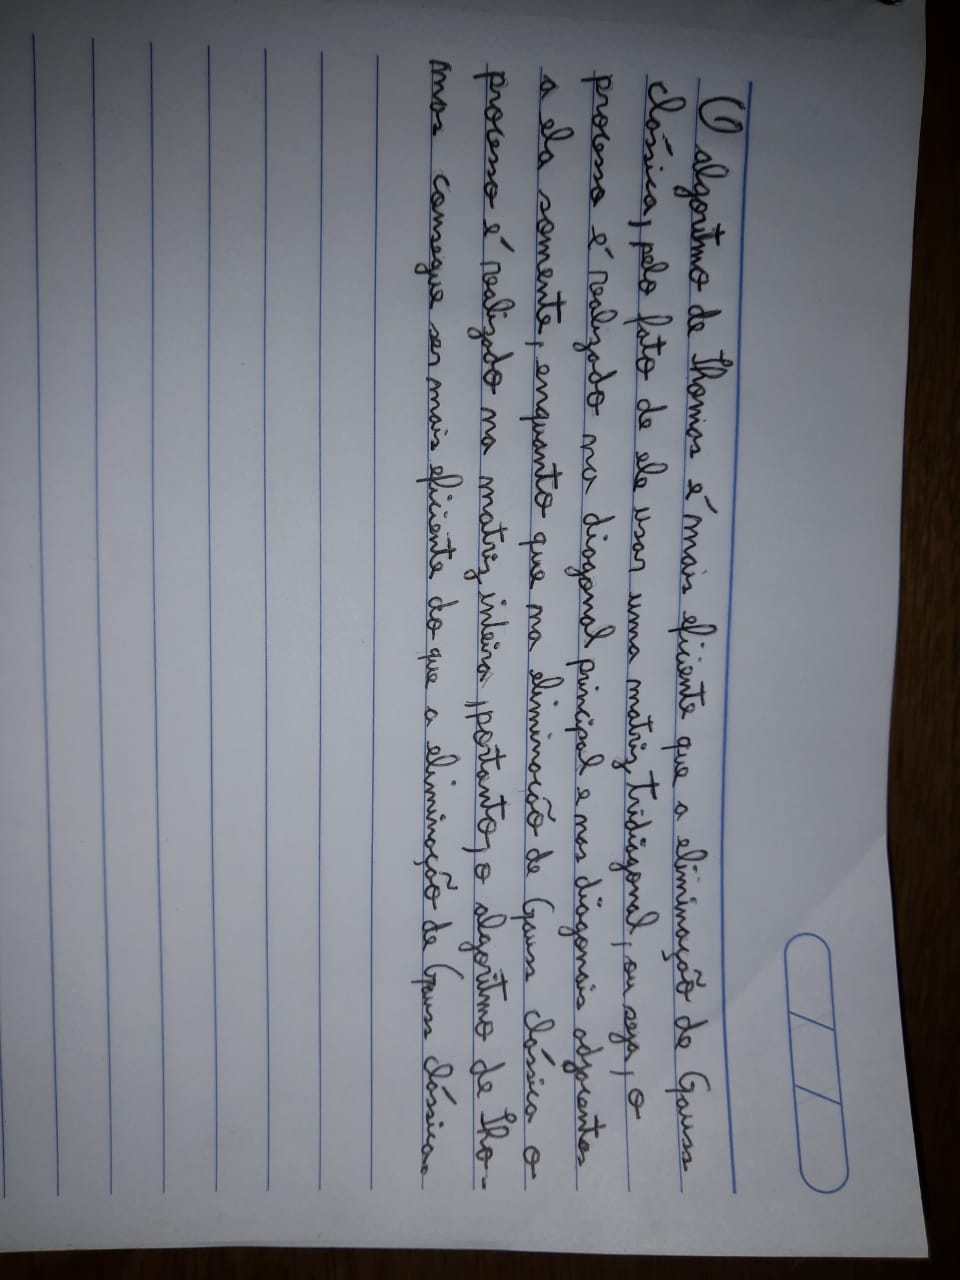 O algoritmo de Thomas é mais eficiente que a eliminação de Gauss
clássica, pelo fato de ele usar uma matriz tridiagonal, ou seja, o
processo é realizado na diagonal principal e nas diagonais adjacentes
a ela somente, enquanto que na eliminação de Gauss clássica o
processo é realizado na matriz inteira, portanto, o algoritmo de Tho-
mas consegue ser mais eficiente do que a eliminação de Gauss clássica.